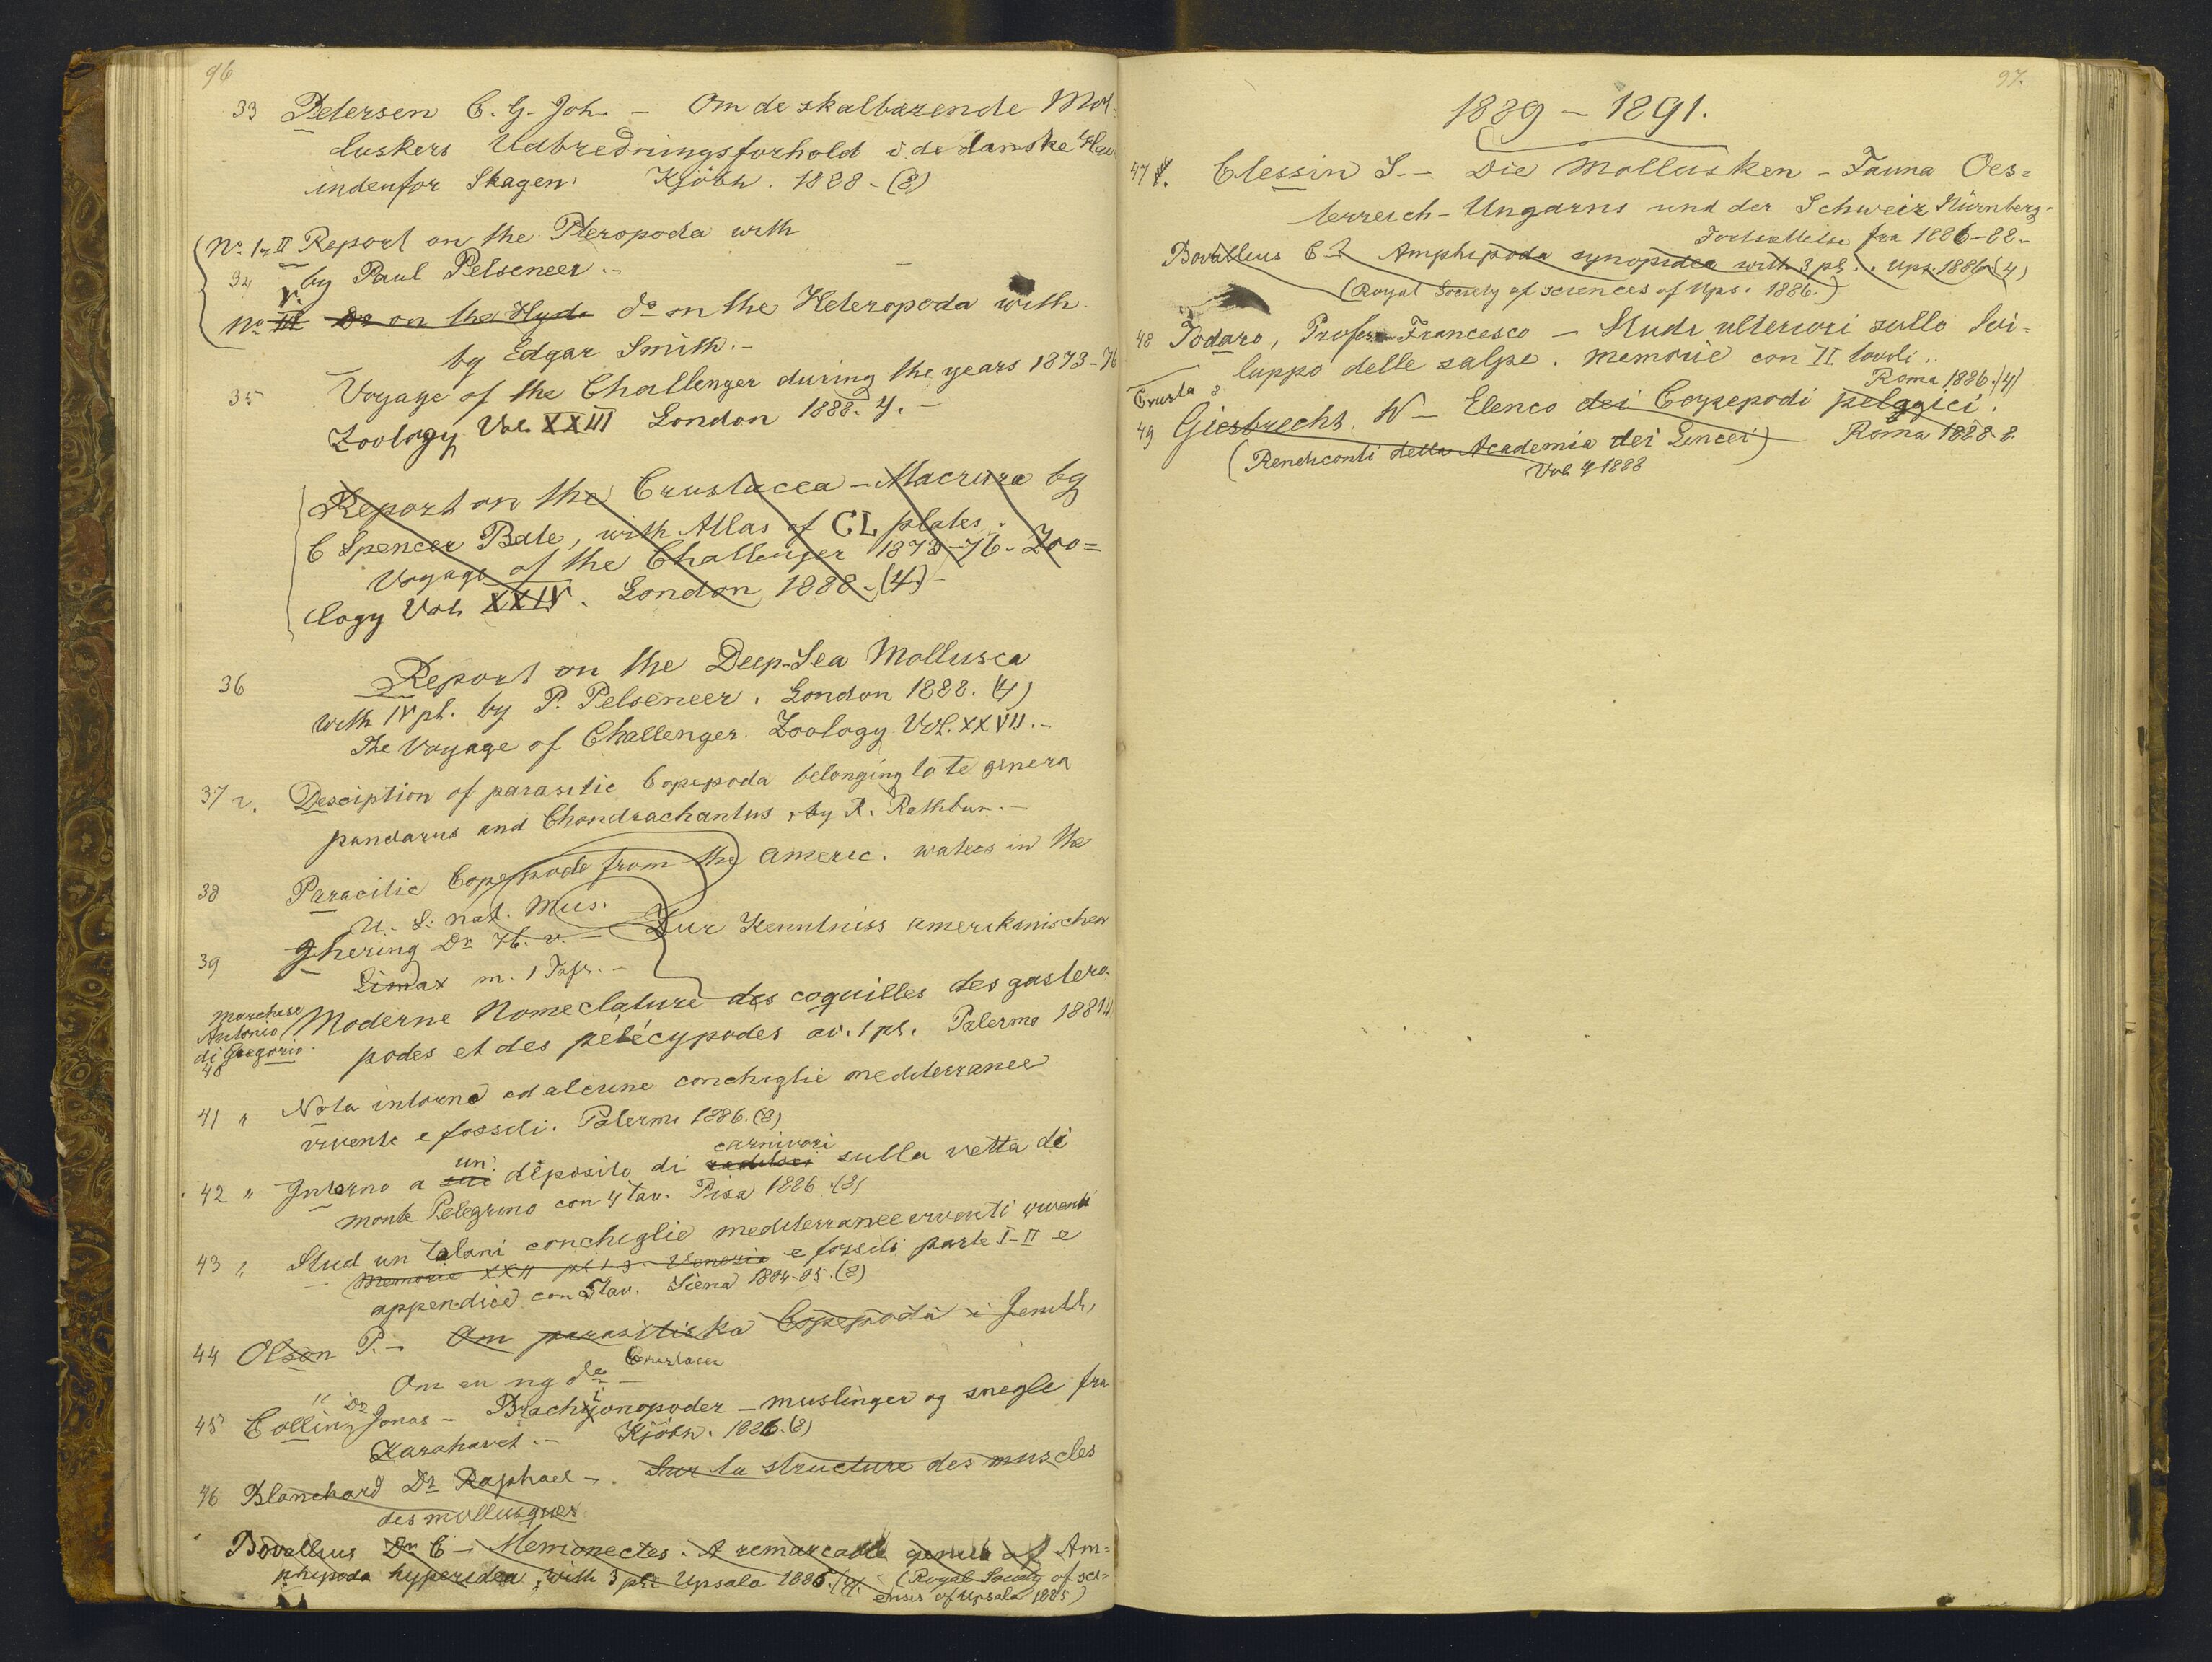 96
33 Petersen C. G. Joh. – Om de skalbærende Mol-
luskers Udbredningsforhold i de danske Hav
indenfor Skagen. Kjöbh. 1888 – (8)
No I & II Report on the Pteropoda with
34 by Paul Pelseneer. –
V.
No III Do on the Hyde do on the Heteropoda with
by Edgar Smith. –
35 Voyage of the Challenger during the years 1873–76
Zoology Vol. XXIII London 1888. 4. –
Report on the Crustacea – Macrura by
C Spencer Bate, with Atlas of CL plates.
Voyage of the Challenger 1873–76. Zoo=
logy Vol. XXIV. London 1888 – (4) –
36 Report on the Deep-Sea Mollusca
with IV pl. by P. Pelseneer. London 1888. (4)
The Voyage of Challenger. Zoology Vol. XXVII. –
37 Desciption of parasitic Copepoda belonging to te genera
pandarus and Chondrachantus, by R. Rathbun. –
38 Paracitic Copepode from the americ. waters in the
U. S. nat. Mus.
39 Jhering Dr H. v. – Zur Kenntniss amerikanischer
Limax m. 1 Tafr. –
Marchese
Antonio
di Gregorio.
40 Moderne Nomeclature des coquilles des gastero-
podes et des pélécypodes av. 1 pl. Palermo 1881
41 " Nota intorno ad alcune conchiglie mediterranee
vivente e fossili. Palermo 1886. (8)
un carnivori
42 " Intorno a deposito di sulla vetta di
monte Pelegrino con 4 tav. Pisa 1886. (8)
43 " Stud un talani conchiglie mediterranee vventi viventi
Memorie XXII pl 1-3 Venezia e fossili parte I–II e
appendice con 5 tav. Siena 1884–85. (8)
44 Olson P. – Om parasitiska Copepoda i Jemtl,
Om en ny do – Crustacea
45 Collin Dr Jonas – Brachionopoder – muslinger og snegle fra
Karahavet. – Kjöbn. 1886. (8)
46 Blanchard Dr Raphael – . Sur la structure des muscles
des mollusques
Bovallius Dr C – Memonectes. A remarcable genus of Am=
phipoda hyperidea, with 3 pl. Upsala 1885. (4) (Royal Society of sci=
ensis of Upsala 1885)
97.
1889 – 1891.
47 Clessin S. – Die Mollusken – Fauna Oes=
terreich – Ungarns und der Schweiz Nürnberg.
Fortsættelse fra 1886–88 –
Bovallius C – Amphipoda synopidea with 3 pl. . Ups. 1886 (4)
(Royal Society of sciences of Ups. 1886.)
48 Todaro, Profess. Francesco – Studi ulteriori sullo Svi=
luppo delle salpe. Memorie con II tavoli..
Roma 1886. (4)
Crusta
49 Giesbrecht, W – Elenco dei Copepodi pelagici.
(Rendiconti della Academia dei Lincei) Roma 1888. 8.
Vol. 4 1888